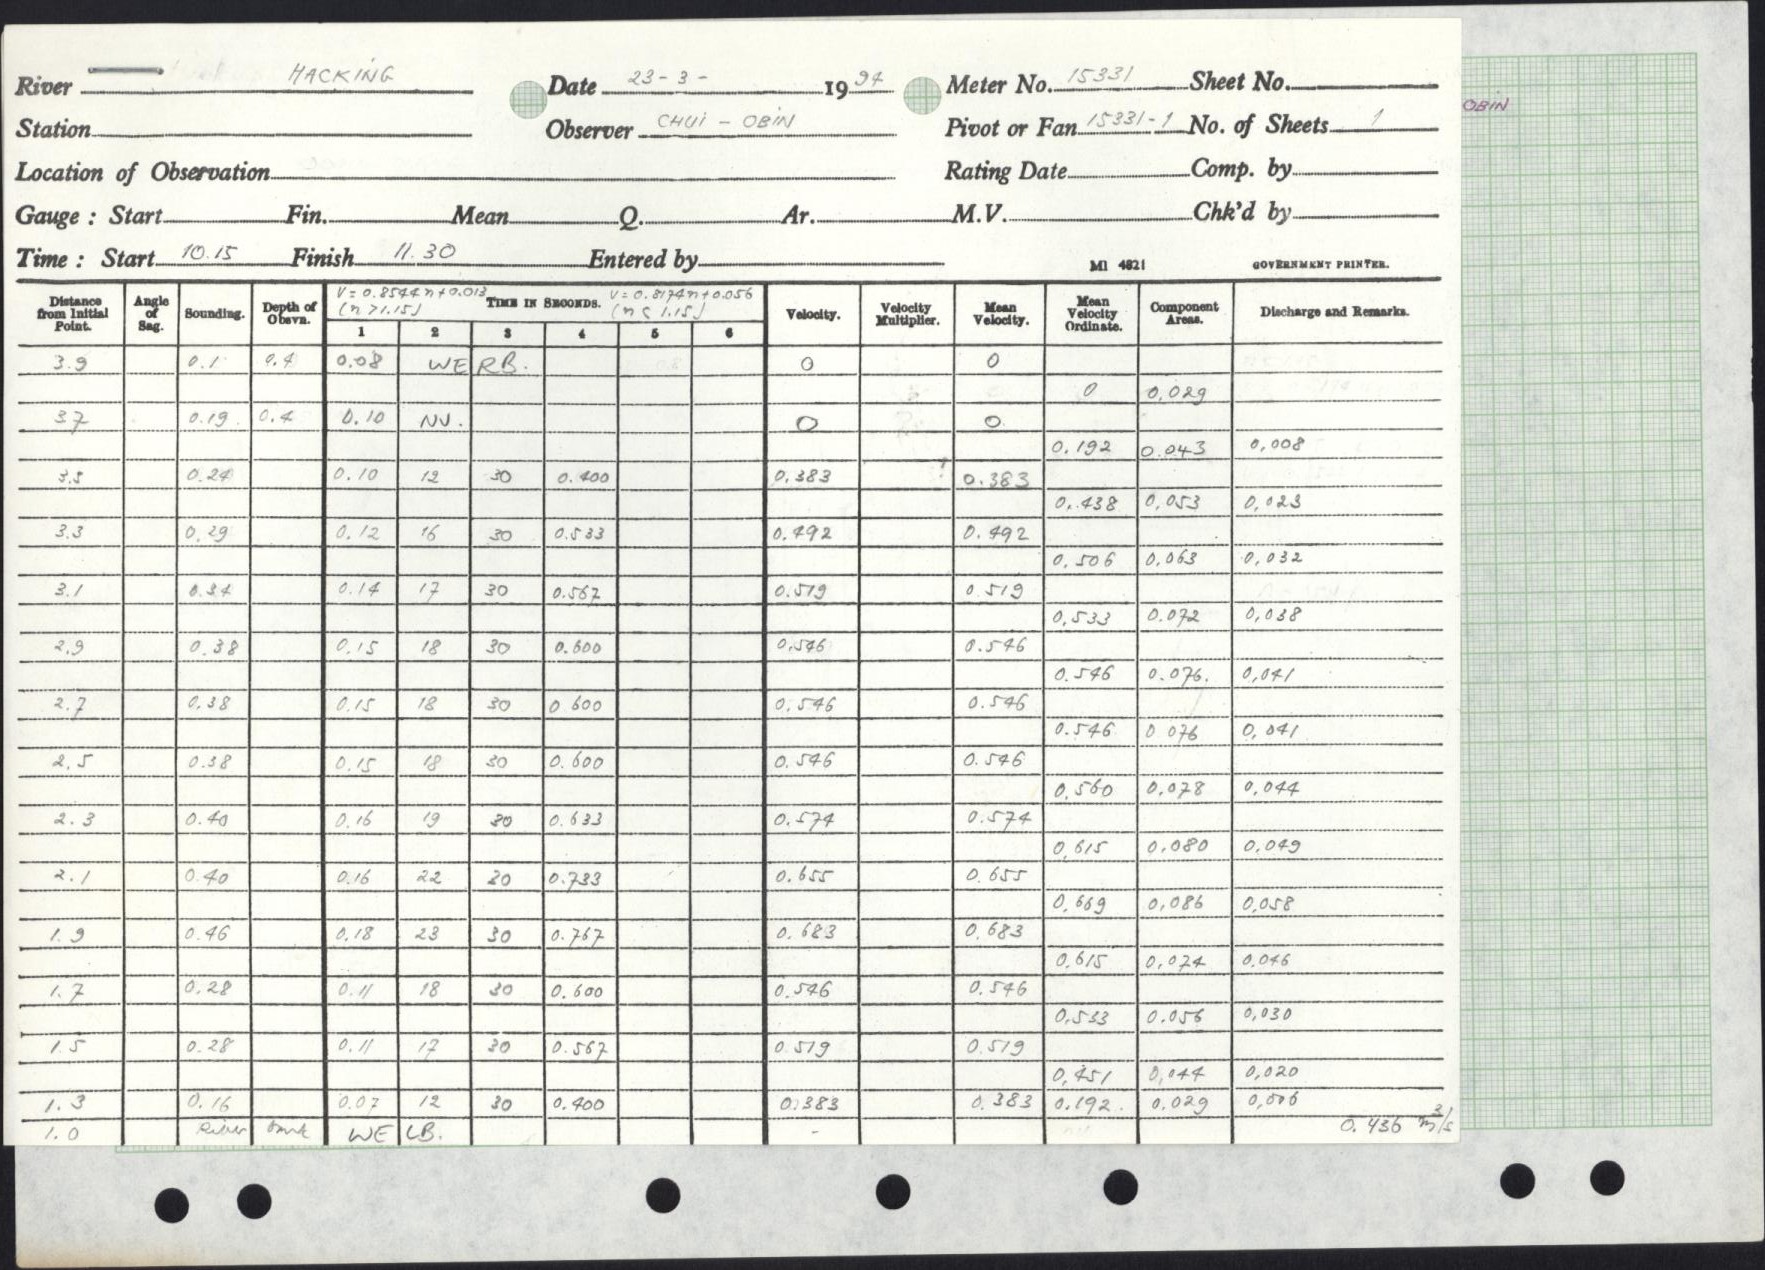 River HACKING Date 23-3- 1994 Meter No. 15331 Sheet No.
OBIN
Station Observer CHUI - OBIN Pivot or Fan 15331-1 No. of Sheets 1
Location of Observation Rating Date Comp. by
Gauge : Start Fin. Mean Q. Ar. M.V. Chk'd by
Time : Start 10.15 Finish 11.30 Entered by MI 4821 GOVERNMENT PRINTER.
Distance from Initial Point. Angle of Sag. Sounding. Depth of Obsvn. V = 0.8544n+0.013 (n > 1.15) TIME IN SECONDS. V = 0.8174n+0.056 (n < 1.15) Velocity. Velocity Multiplier. Mean Velocity. Mean Velocity Ordinate. Component Areas. Discharge and Remarks.
1 2 3 4 5 6
3.9 0.1 0.4 0.08 WE RB. 0 0
0 0.029
3.7 0.19 0.4 0.10 NV. 0 0
0.192 0.043 0.008
3.5 0.24 0.10 12 30 0.400 0.383 0.383
0.438 0.053 0.023
3.3 0.29 0.12 16 30 0.533 0.492 0.492
0.506 0.063 0.032
3.1 0.34 0.14 17 30 0.567 0.519 0.519
0.533 0.072 0.038
2.9 0.38 0.15 18 30 0.600 0.546 0.546
0.546 0.076. 0.041
2.7 0.38 0.15 18 30 0.600 0.546 0.546
0.546 0.076 0.041
2.5 0.38 0.15 18 30 0.600 0.546 0.546
0.560 0.078 0.044
2.3 0.40 0.16 19 30 0.633 0.574 0.574
0.615 0.080 0.049
2.1 0.40 0.16 22 30 0.733 0.655 0.655
0.669 0.086 0.058
1.9 0.46 0.18 23 30 0.767 0.683 0.683
0.615 0.074 0.046
1.7 0.28 0.11 18 30 0.600 0.546 0.546
0.533 0.056 0.030
1.5 0.28 0.11 17 30 0.567 0.519 0.519
0.451 0.044 0.020
1.3 0.16 0.07 12 30 0.400 0.383 0.383 0.192. 0.029 0.006
1.0 River bank WE LB. - 0.436 m³/s